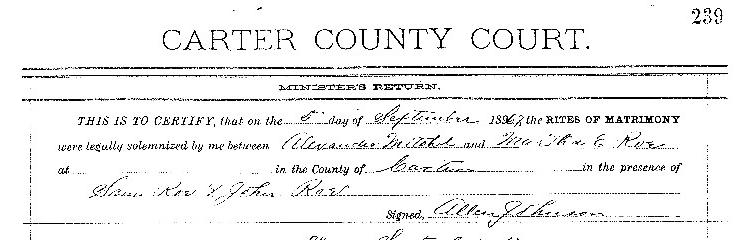 239
CARTER COUNTY COURT.
MINISTER'S RETURN.
THIS IS TO CERTIFY, that on the 5 day of September 189 the RITES OF MATRIMONY
were legally solemnized by me between Alexander Mitchel and Martha E Row
at in the County of Carter in the presence of
Sam Row & John Row
Signed, Allen Johnson